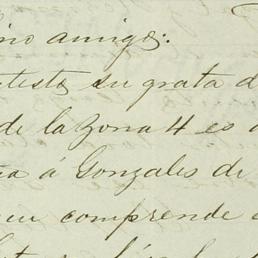 ino amigo:
testo su grata d
de la Zona 4 es
ia á Gonzales de
comprende